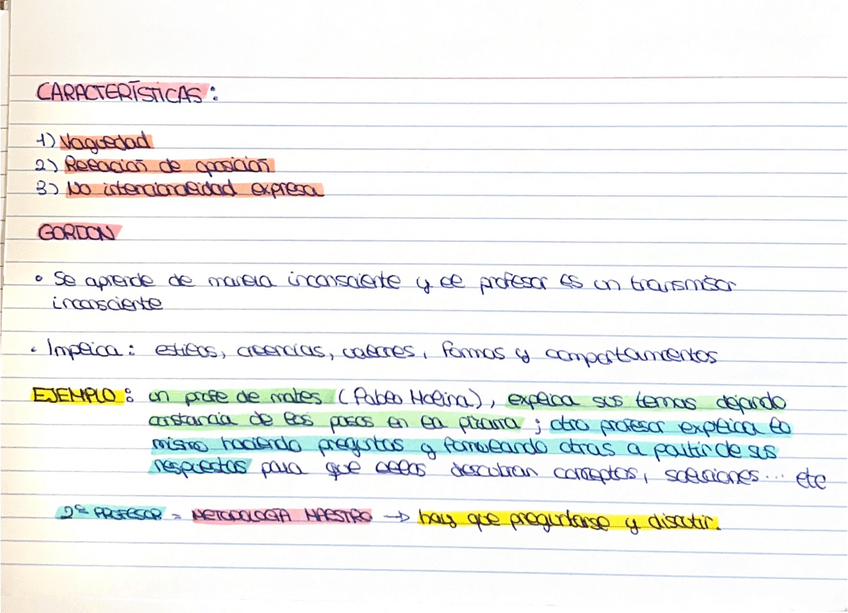 CARACTERÍSTICAS:
1) Vaguedad
2) Relación de oposición
3) No intencionalidad expresa
GORDON
• Se aprende de manera inconsciente y el profesor es un transmisor
inconsciente
• Implica: estilos, creencias, valores, formas y comportamientos
EJEMPLO: un profe de mates (Pablo Molina), explica sus temas dejando
constancia de los pasos en la pizarra; otro profesor explica lo
mismo haciendo preguntas y formulando otras a partir de sus
respuestas para que ellos descubran conceptos, soluciones... etc
2º PROFESOR = METODOLOGÍA MAESTRO → hay que preguntarse y discutir.